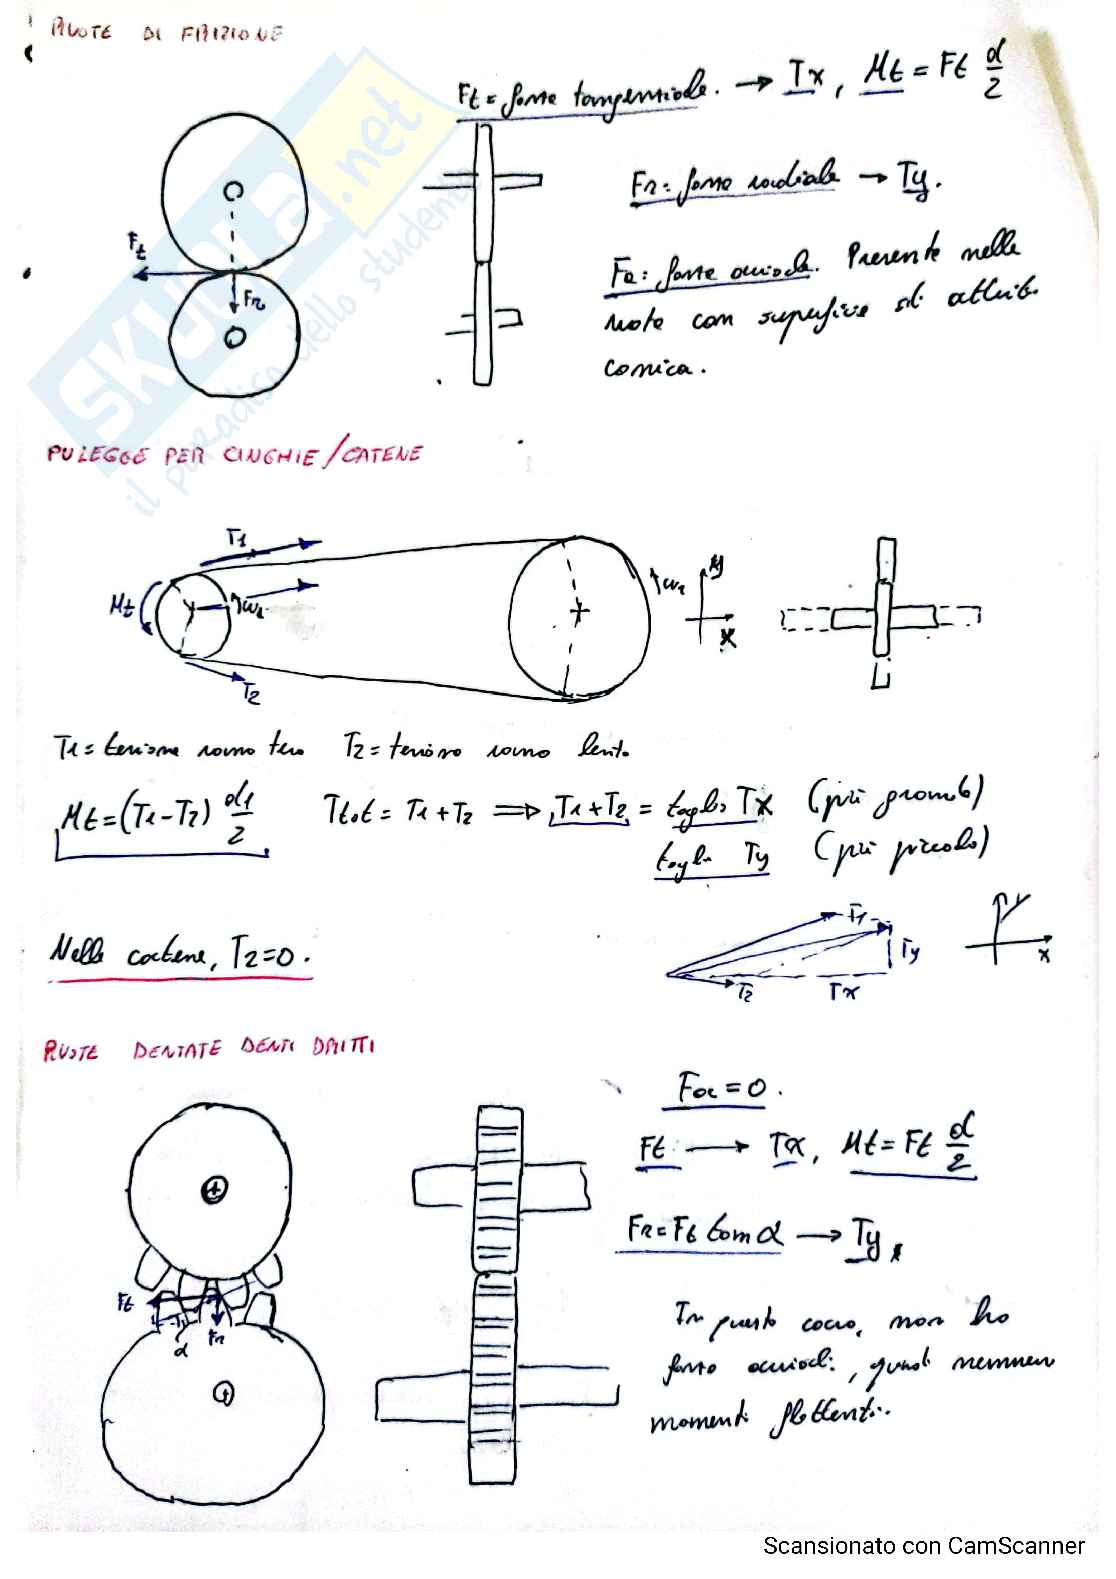 RUOTE DI FRIZIONE
Ft = forza tangenziale. → Tx, Mt = Ft d/2
Fr = forza radiale → Ty.
Fa: forza assiale. Presente nelle
ruote con superficie di attrito
conica.
Ft
Fr
SKUOLA.net
il paradiso dello studente
PULEGGE PER CINGHIE/CATENE
T1
Mt
ω1
T2
ω2
y
x
T1 = tensione ramo teso T2 = tensione ramo lento
Mt = (T1 - T2) d1/2 Ttot = T1 + T2 ⟹ T1 + T2 = taglio Tx (più grande)
taglio Ty (più piccolo)
Nelle catene, T2 = 0.
T1
Ty
T2
Tx
y
x
RUOTE DENTATE DENTI DRITTI
Fa = 0.
Ft → Tx, Mt = Ft d/2
Fr = Ft tan α → Ty
Ft
Fr
α
In questo caso, non ho
forze assiali, quindi nemmeno
momenti flettenti.
Scansionato con CamScanner